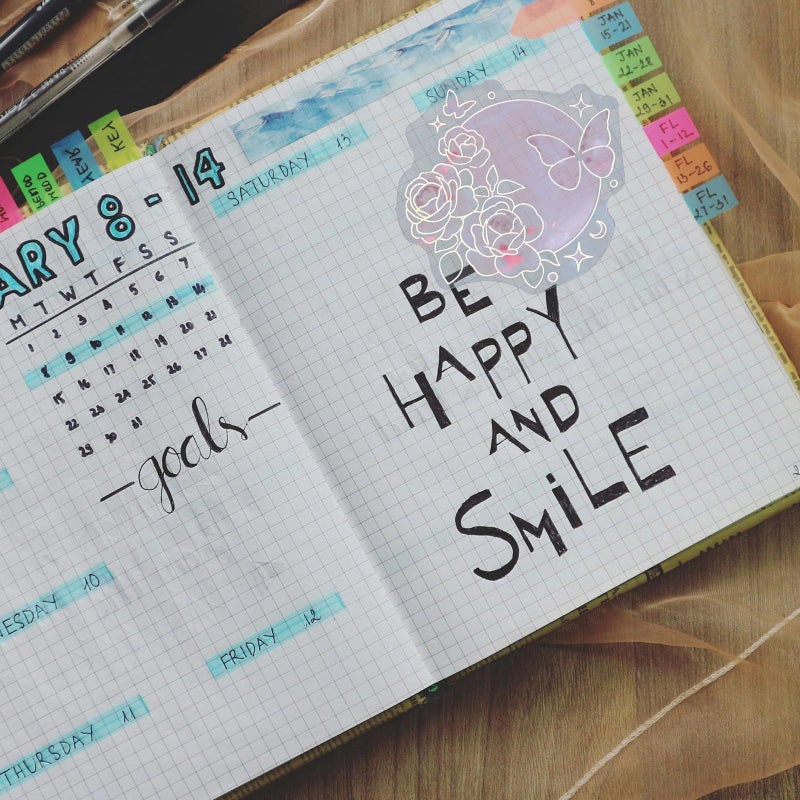 KEY
YEAR
MOOD
ARY 8-14
M T W T F S S
1 2 3 4 5 6 7
8 9 10 11 12 13 14
15 16 17 18 19 20 21
22 23 24 25 26 27 28
29 30 31
-goals-
ESDAY 10
THURSDAY 11
FRIDAY 12
SATURDAY 13
SUNDAY 14
BE
HAPPY
AND
SMiLE
JAN
15-21
JAN
22-28
JAN
29-31
FL
1-12
FL
13-26
FL
27-31